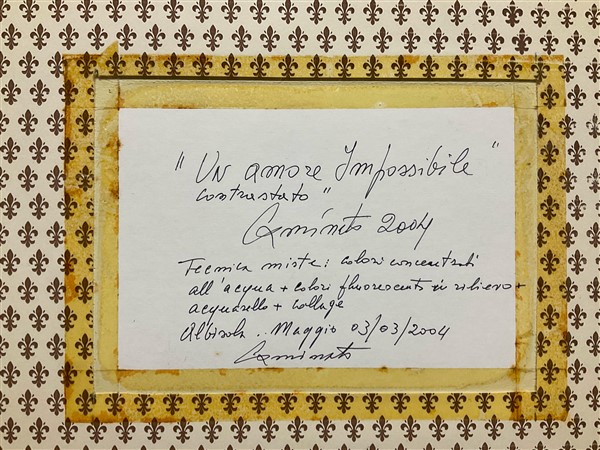 " Un amore Impossibile "
contrastato "
Aminato 2004
Tecnica mista: colori concentrati
all'acqua + colori fluorescenti in rilievo +
acquarello + collage
Albisola . Maggio 03/03/2004
Aminato